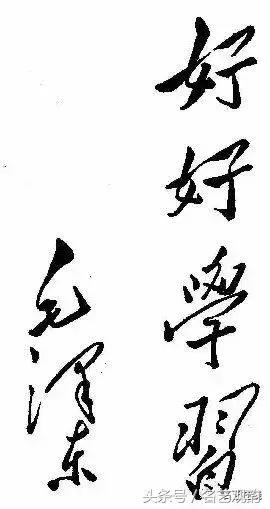 好好學習
毛泽东
头条号/名艺观韵